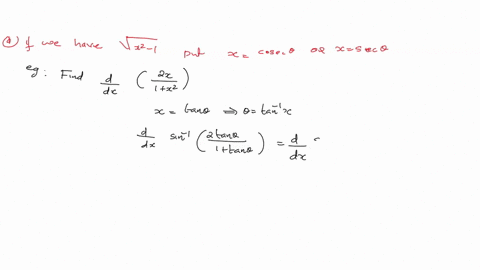 ④ If we have √(x²-1) put x = cosec θ or x = sec θ
eg: Find d/dx (2x/(1+x²))
x = tanθ ⟹ θ = tan⁻¹x
d/dx sin⁻¹ (2tanθ/(1+tanθ)) = d/dx